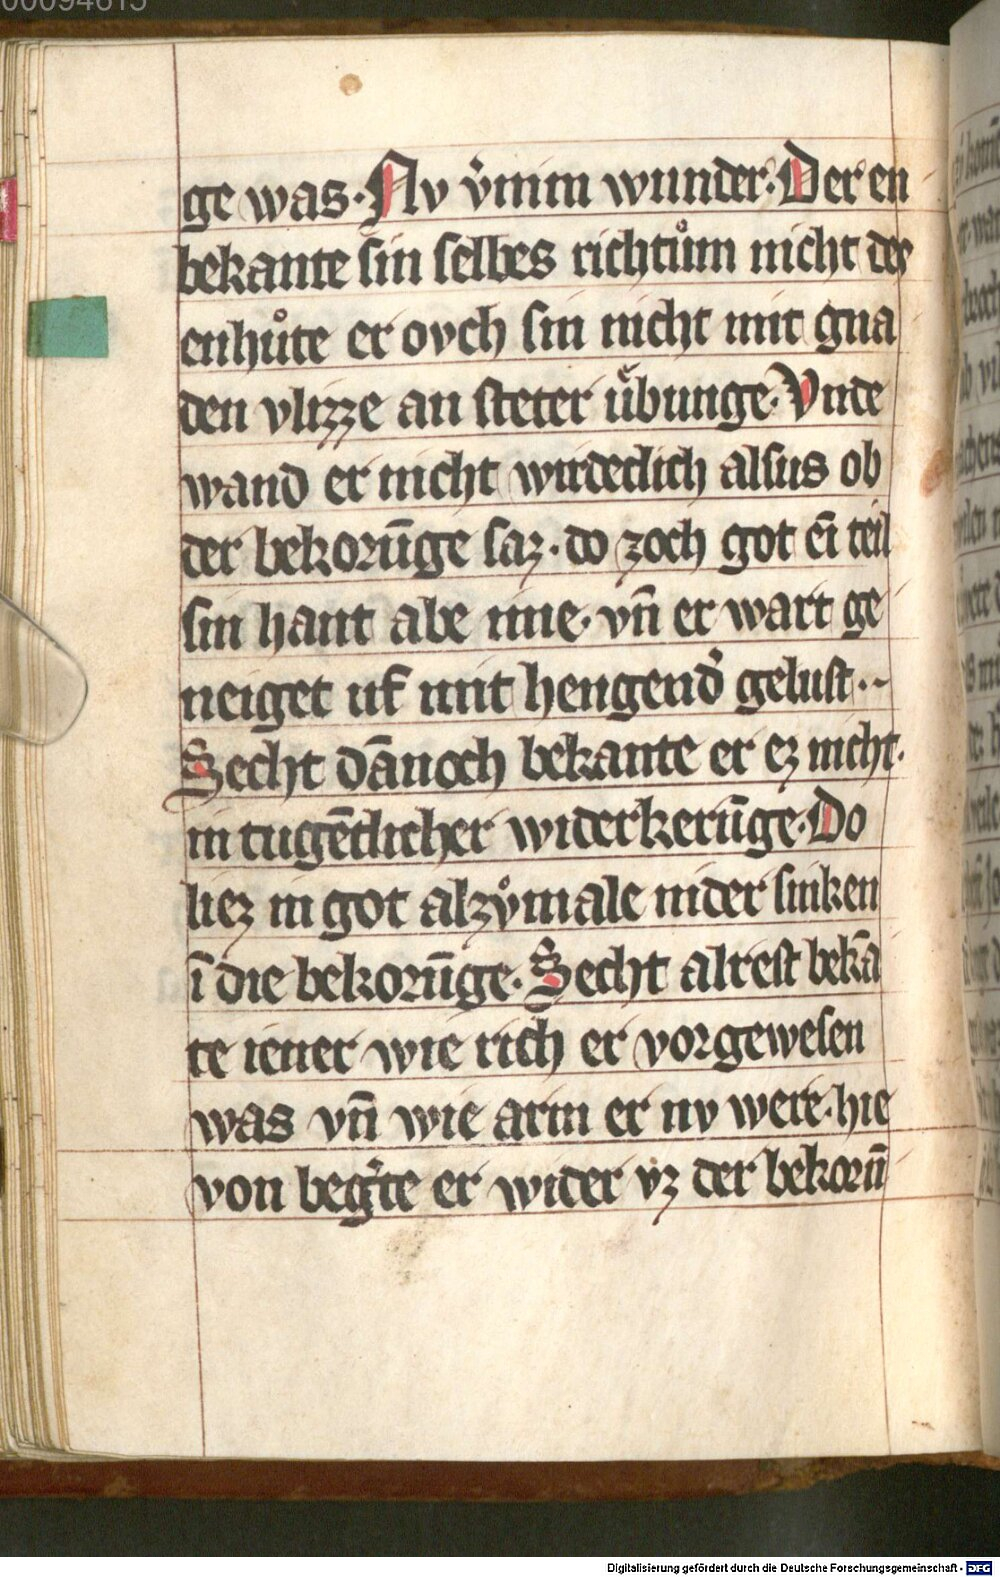 00094615
ge was· Nv v̾nim wunder· Der en
bekante sin selbes richtuͦm nicht der
enhuͦte er ovch sin nicht mit gna
den vlizze an steter uͤbunge· Vnde
wand er nicht wirdeclich alsus ob
der bekorūge saz· do zoch got eī teil
sin hant abe ime· vn̄ er wart ge
neiget uf mit hengend̾ gelust·-
Secht dānoch bekante er ez nicht·
in tugētlicher widerkerūge· Do
liez in got alzvͦmale nider sinken
ī die bekorūge· Secht alrest bekā
te iener wie rich er vorgewesen
was vn̄ wie arm er nv were· hie
von beg̾te er wider vz der bekorū
Digitalisierung gefördert durch die Deutsche Forschungsgemeinschaft - DFG